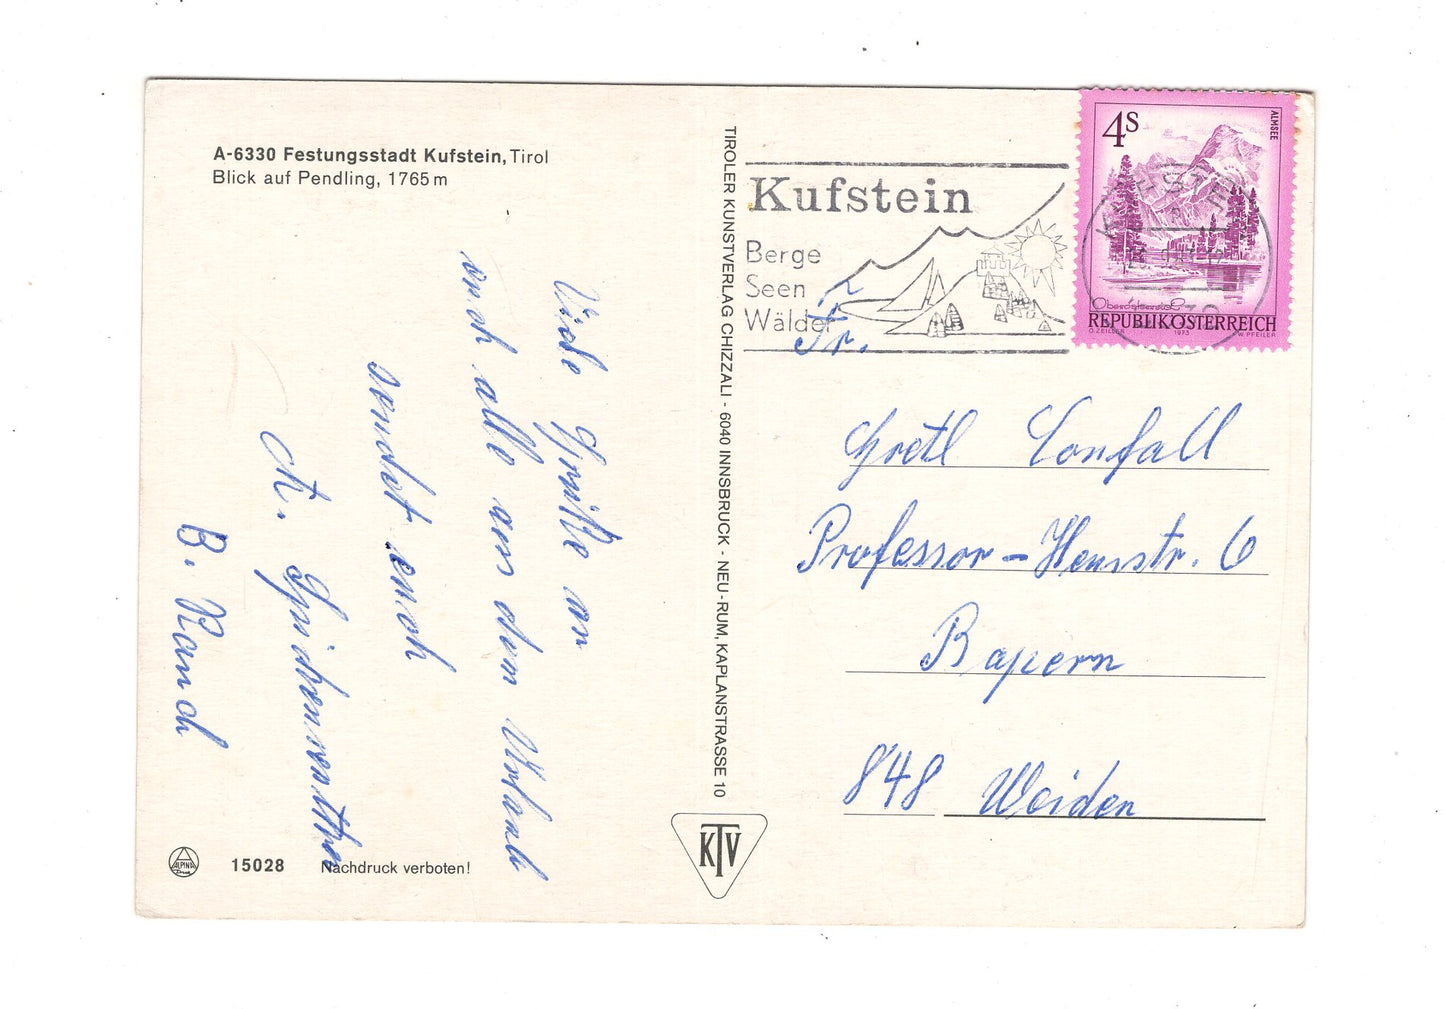 A-6330 Festungsstadt Kufstein, Tirol
Blick auf Pendling, 1765 m
Viele Grüße an
euch alle aus dem Urlaub
sendet euch
B. Rauch
15028 Nachdruck verboten!
ALPINA
TIROLER KUNSTVERLAG CHIZZALI - 6040 INNSBRUCK - NEU-RUM, KAPLANSTRASSE 10
KTV
Kufstein
Berge
Seen
Wälder
4S
ALMSEE
Oberösterreich
REPUBLIK ÖSTERREICH
O. ZEILLER 1973 W. PFEILER
Fr.
Gretl
Professor - Heusstr. 6
Bayern
848 Weiden